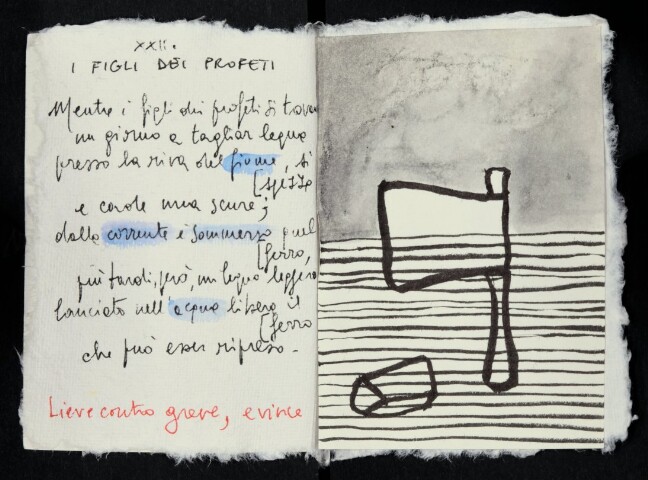 XXII.
I FIGLI DEI PROFETI
Mentre i figli dei profeti si trovan
un giorno a tagliar legna
presso la riva del fiume, si
[spezza
e cade una scure;
dalla corrente è sommerso quel
[ferro,
più tardi, però, un legno leggero
lanciato nell'acqua libera il
[ferro
che può esser ripreso.
Lieve contro greve, e vince